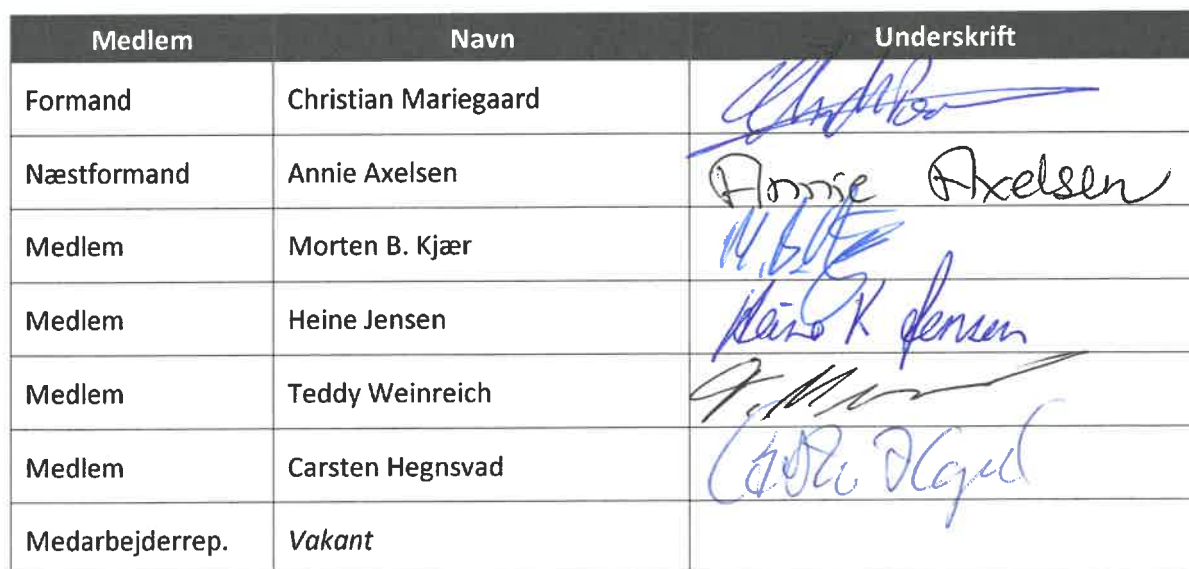 Medlem Navn Underskrift
Formand Christian Mariegaard
Næstformand Annie Axelsen Annie Axelsen
Medlem Morten B. Kjær M. B.
Medlem Heine Jensen Heine K Jensen
Medlem Teddy Weinreich T.
Medlem Carsten Hegnsvad
Medarbejderrep. Vakant